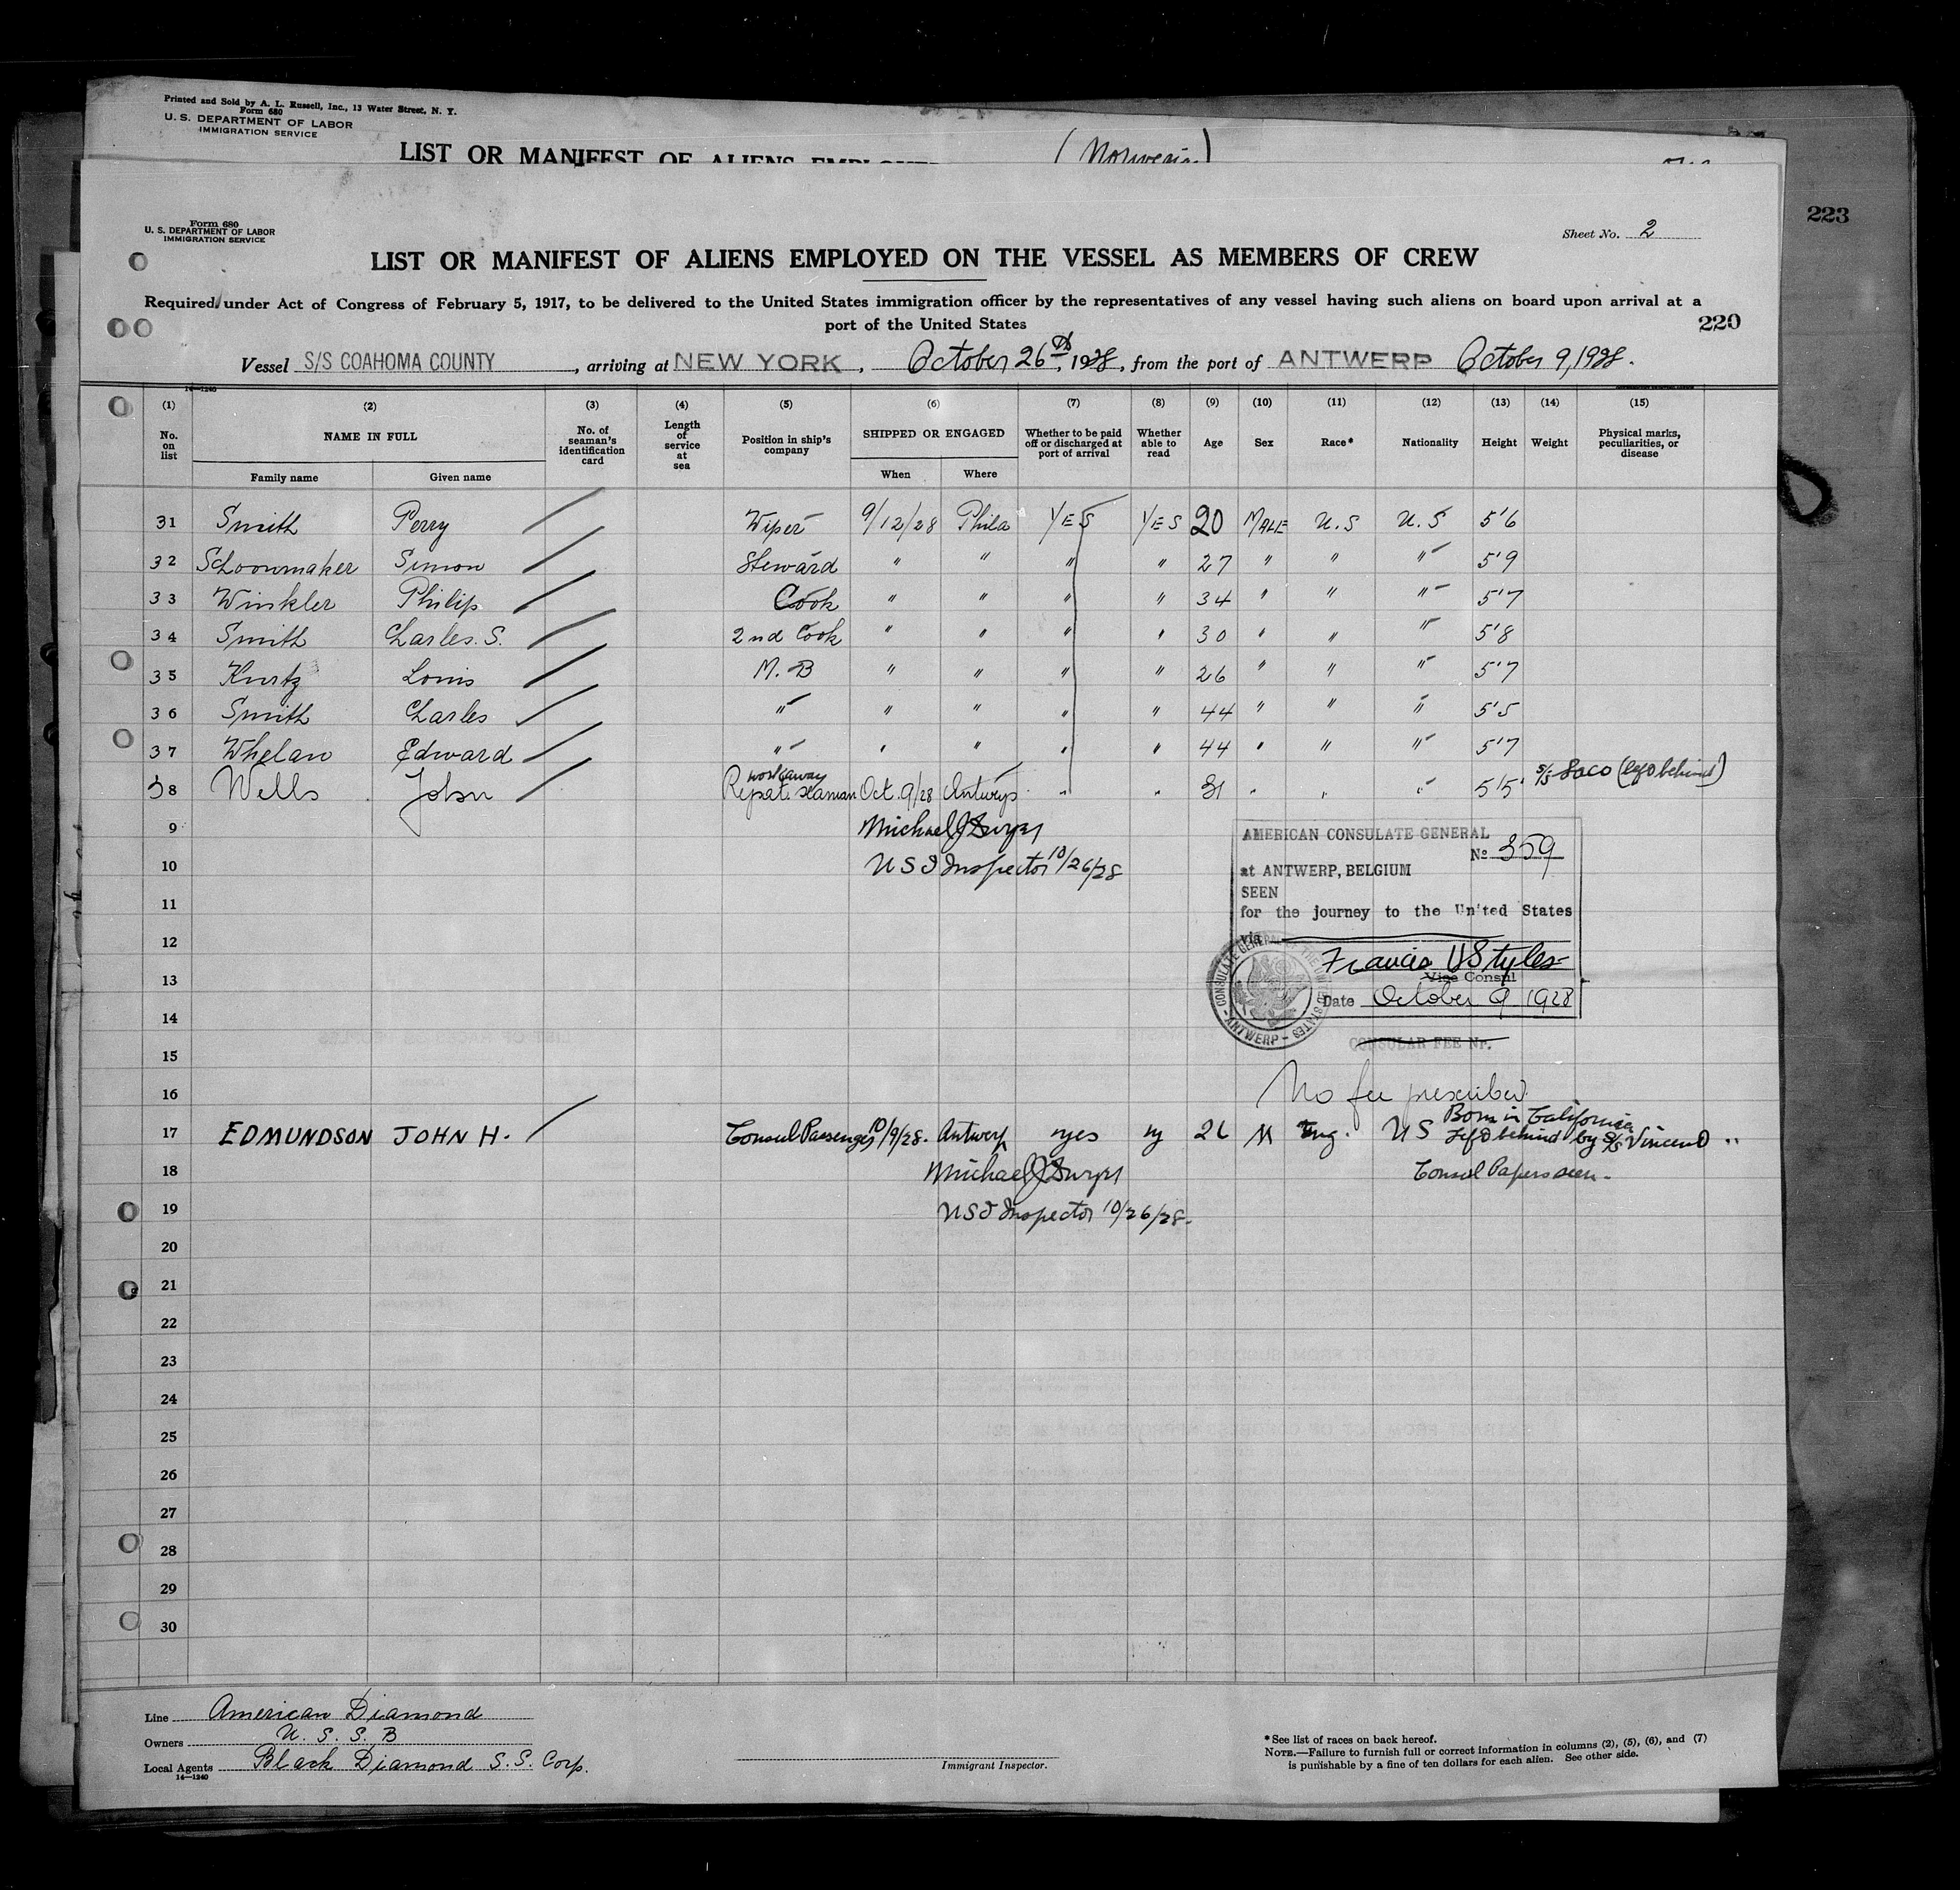 Printed and Sold by A. L. Russell, Inc., 13 Water Street, N. Y.
Form 680
U. S. DEPARTMENT OF LABOR
IMMIGRATION SERVICE
LIST OR MANIFEST OF ALIENS EMPLOYED
223
Form 680
U. S. DEPARTMENT OF LABOR
IMMIGRATION SERVICE
Sheet No. 2
LIST OR MANIFEST OF ALIENS EMPLOYED ON THE VESSEL AS MEMBERS OF CREW
Required under Act of Congress of February 5, 1917, to be delivered to the United States immigration officer by the representatives of any vessel having such aliens on board upon arrival at a
port of the United States
220
Vessel S/S COAHOMA COUNTY, arriving at NEW YORK, October 26th, 1928, from the port of ANTWERP October 9, 1928.
14—1240
(1) (2) (3) (4) (5) (6) (7) (8) (9) (10) (11) (12) (13) (14) (15)
No. on list NAME IN FULL No. of seaman's identification card Length of service at sea Position in ship's company SHIPPED OR ENGAGED Whether to be paid off or discharged at port of arrival Whether able to read Age Sex Race* Nationality Height Weight Physical marks, peculiarities, or disease
Family name Given name When Where
31 Smith Perry Wiper 9/12/28 Phila YES YES 20 MALE U.S U.S 5'6
32 Schoonmaker Simon Steward " " " " 27 " " " 5'9
33 Winkler Philip Cook " " " " 34 " " " 5'7
34 Smith Charles. S. 2nd Cook " " " " 30 " " " 5'8
35 Kurtz Louis M. B " " " " 26 " " " 5'7
36 Smith Charles " " " " " 44 " " " 5'5
37 Whelan Edward " " " " " 44 " " " 5'7
38 Wells John workaway Repat. seaman Oct. 9/28 Antwerp " " 31 " " " 5'5" S/S Saco (left behind)
9 Michael J
10 USI Inspector 10/26/28
AMERICAN CONSULATE GENERAL
No 359
at ANTWERP, BELGIUM
SEEN
for the journey to the United States
via
Francis H Styles
Vice Consul
Date October 9 1928
CONSULATE GENERAL OF THE UNITED STATES - ANTWERP -
CONSULAR FEE Nr.
No fee prescribed
11
12
13
14
15
16
17 EDMUNDSON JOHN H. Consul Passenger 10/9/28. Antwerp yes 26 M Eng. US Born in California Left behind by S/S Vincent
18 Michael J Consul Papers seen.
19 USI Inspector 10/26/28.
20
21
22
23
24
25
26
27
28
29
30
Line American Diamond
Owners U. S. S. B
Local Agents Black Diamond S. S. Corp.
14—1240
Immigrant Inspector.
*See list of races on back hereof.
NOTE.—Failure to furnish full or correct information in columns (2), (5), (6), and (7)
is punishable by a fine of ten dollars for each alien. See other side.